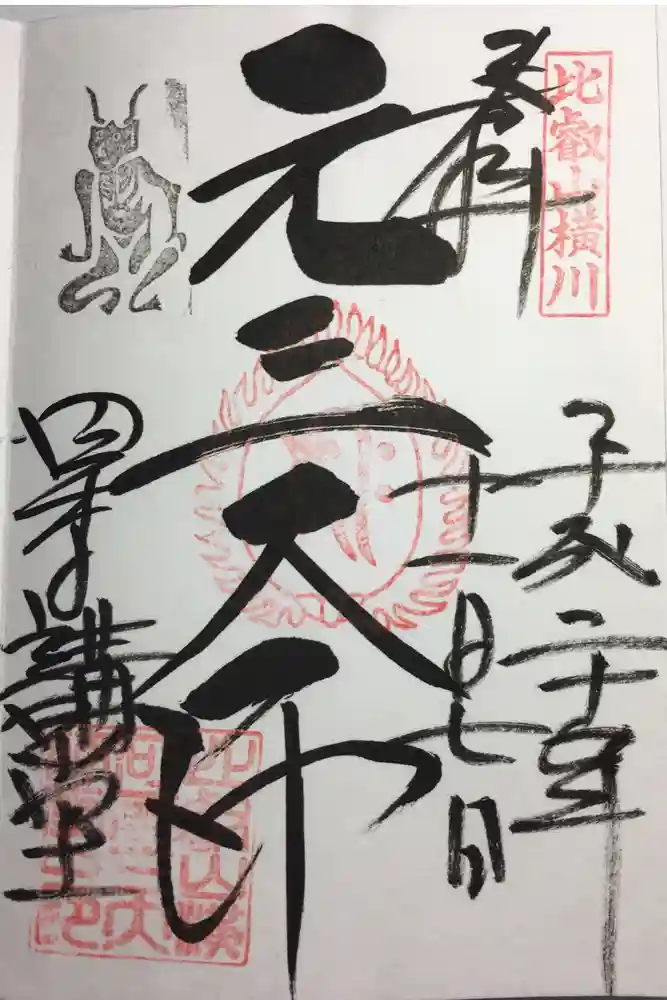 比叡山横川
奉拝
平成二十年
十一月七日
元三大師
四季講堂